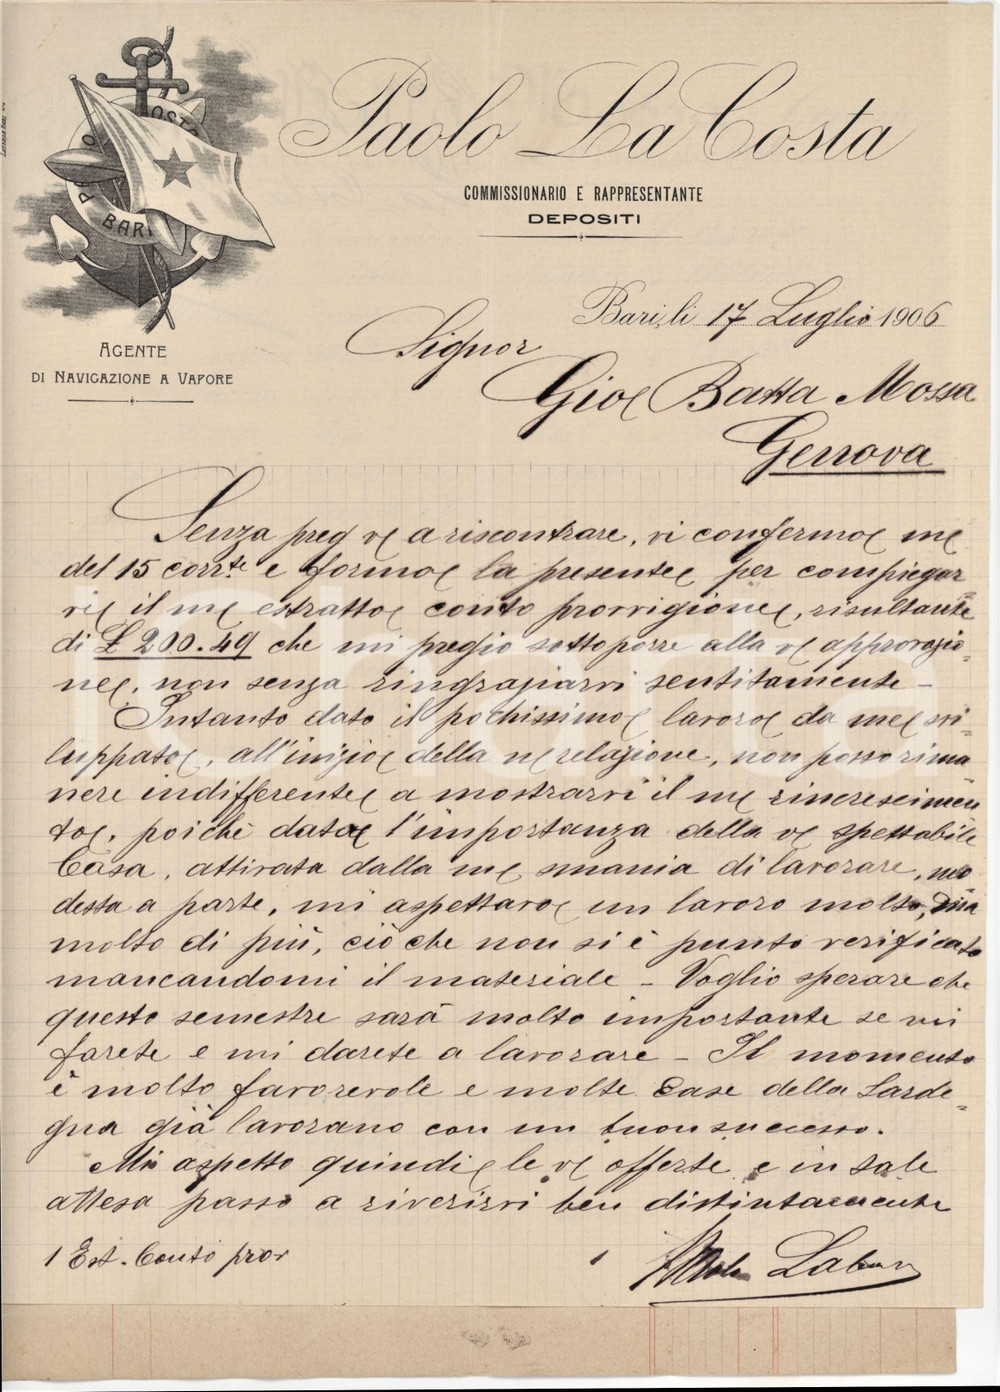 Paolo La Costa
COMMISSIONARIO E RAPPRESENTANTE
DEPOSITI
BARI
AGENTE
DI NAVIGAZIONE A VAPORE
Bari, li 17 Luglio 1906
Signor
Gio Batta Mossa
Genova
Senza preg vs a riscontrare, vi confermo me
del 15 corrte e formo la presente per compiegar
vi il m/ estratto conto provvigione, risultante
di £ 200.49 che mi pregio sottoporre alla vs approvazio-
ne, non senza ringraziarvi sentitamente -
Intanto dato il pochissimo lavoro da me svi-
luppato, all'inizio della ns relazione, non posso rima
nere indifferente a mostrarvi il m/ rincrescimen
to, poichè dato l'importanza della vs spettabile
Casa, attivata dalla m/ smania di lavorare, mo
desta a parte, mi aspettavo un lavoro molto, ma
molto di più, ciò che non si è punto verificato
mancandomi il materiale - Voglio sperare che
questo semestre sarà molto importante se mi
farete e mi darete a lavorare - Il momento
è molto favorevole e molte Case della Sarde-
gna già lavorano con un buon successo.
Mi aspetto quindi le vs offerte e in tale
attesa passo a riverirvi ben distintamente
1 Est. Conto prov